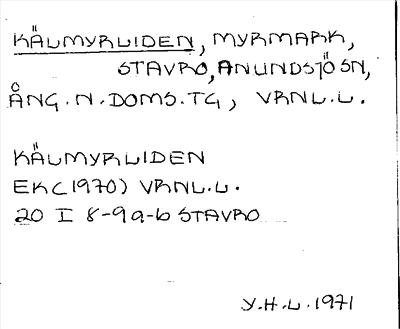 KÄLMYRLIDEN, MYRMARK,
STAVRO, ANUNDSJÖ SN,
ÅNG.N.DOMS.TG, VRNL.L.
KÄLMYRLIDEN
EK(1970) VRNL.L.
20 I 8-9a-b STAVRO
Y.H.L.1971